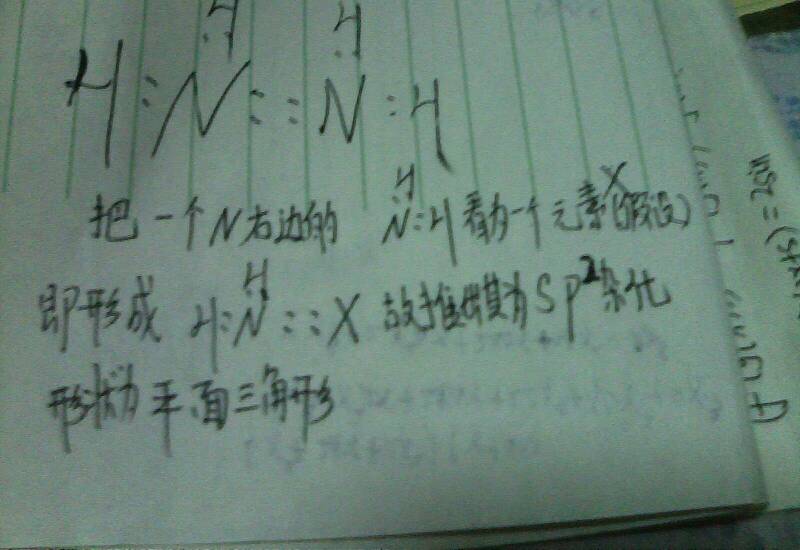 H H
H : N :: N : H
把一个N右边的 H N:H 看为一个元素X(假设)
即形成 H:N::X 故推出其为SP²杂化
H
形状为平面三角形